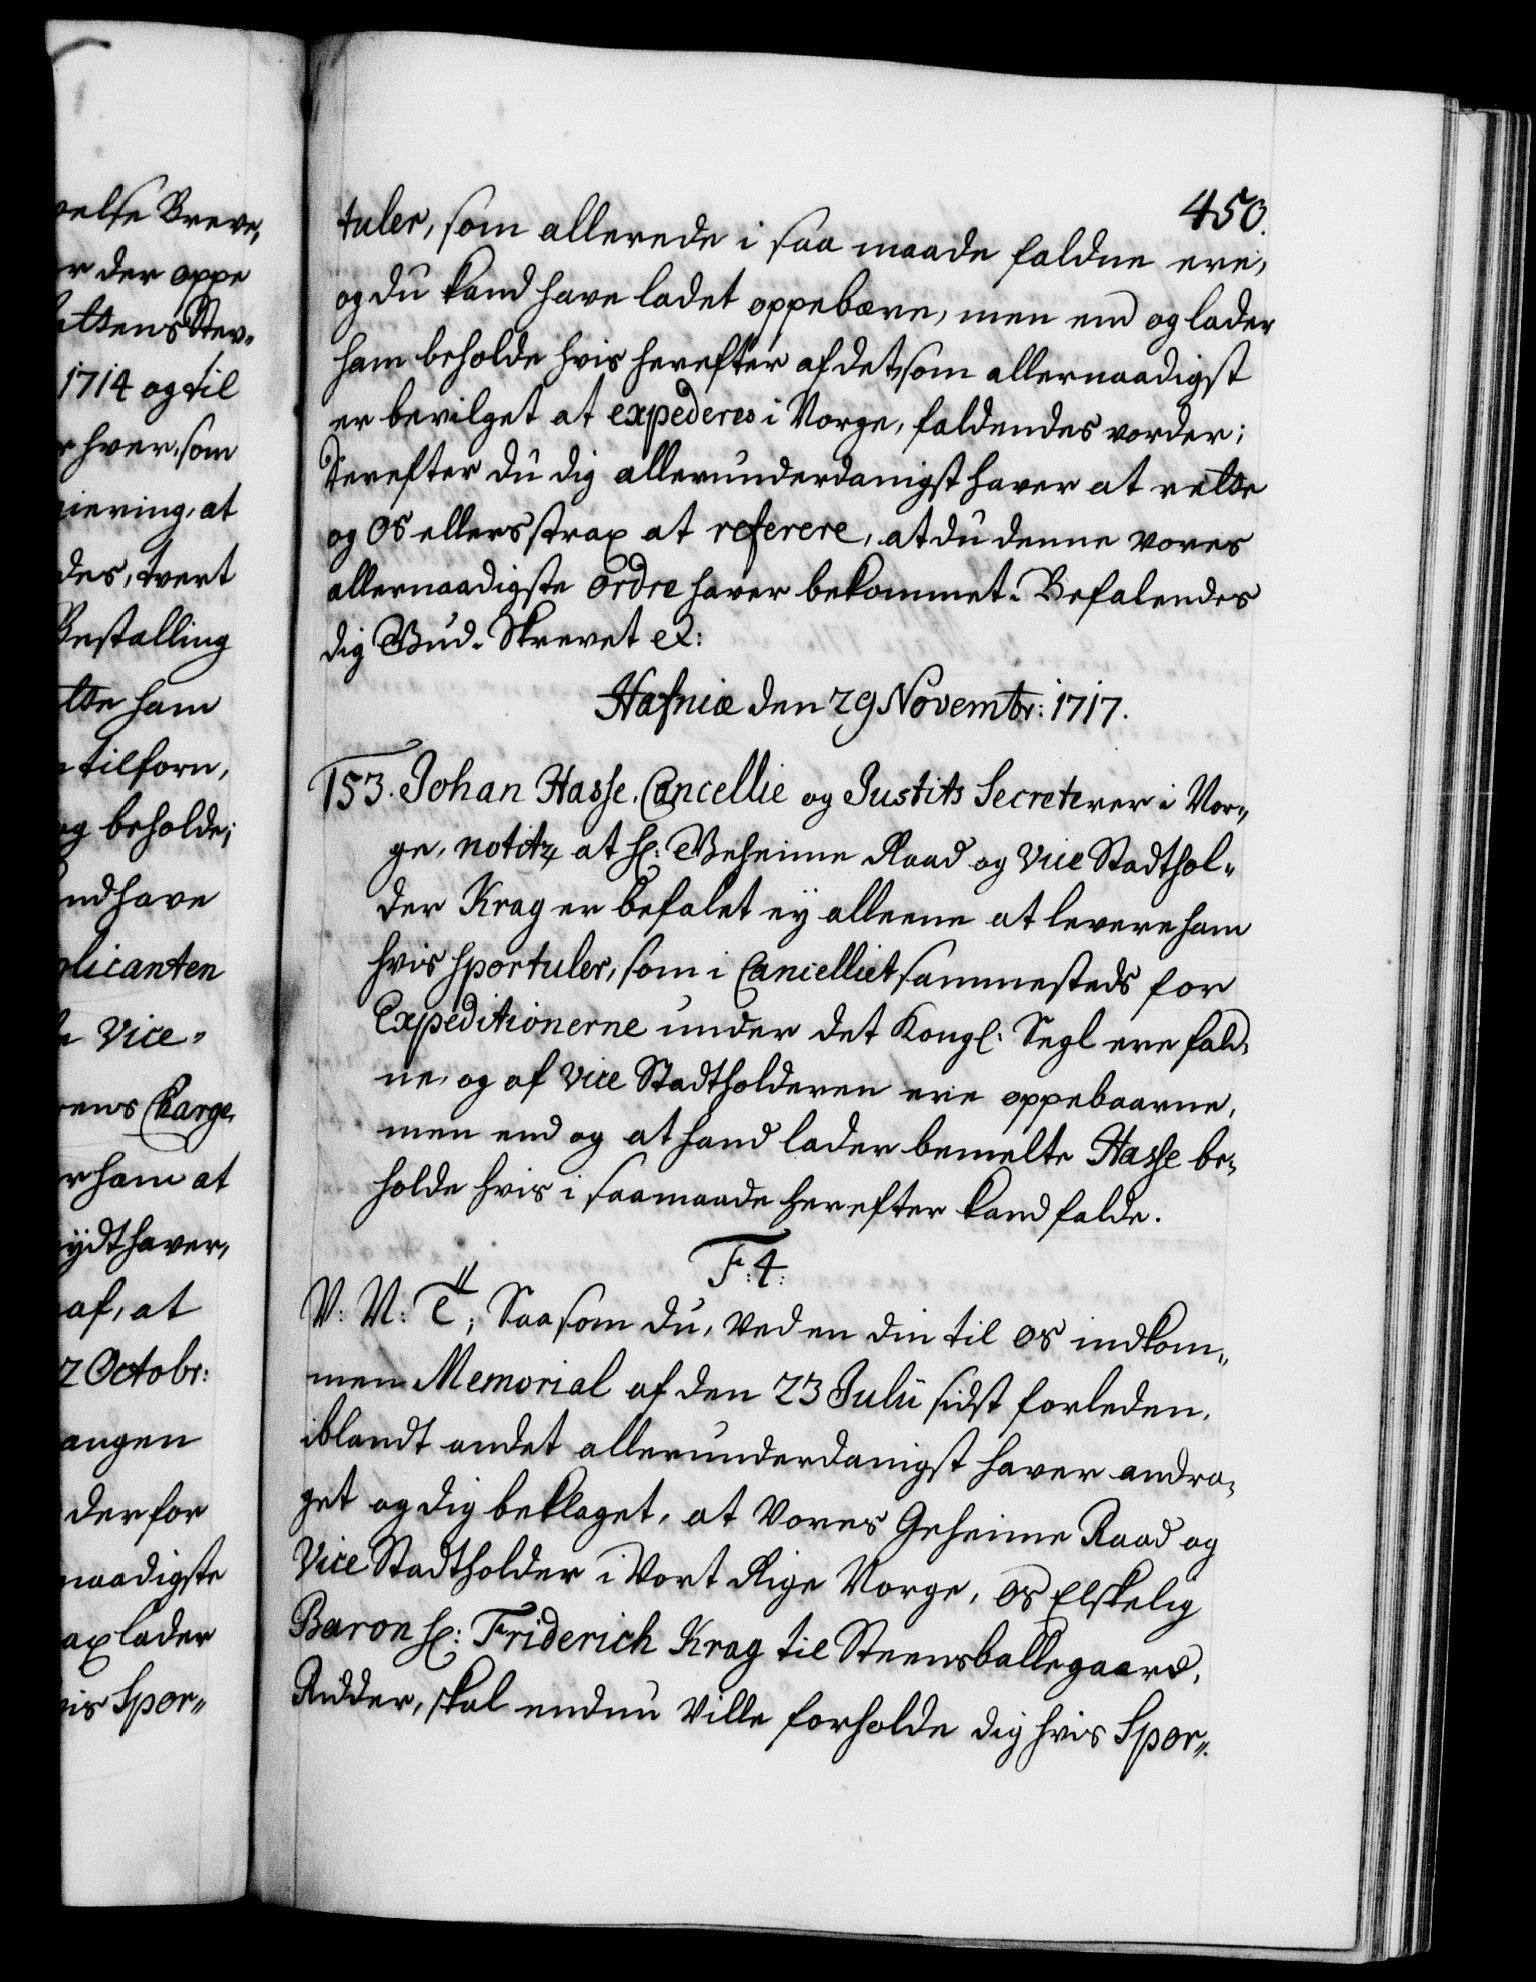 velse Breve,
r der oppe
ettens Stev-
1714 og til
r hver, som
giering, at
des, tvert
Bestalling
tte ham
tilforn,
og beholde;
nd have
plicanten
Vice-
rens Charge,
r ham at
nydt haver,
af, at
2 Octobr:
angen
derfor
naadigste
ax lader
vis Spor-
450.
tuler, som allerede i saa maade faldne ere,
og du kand have ladet oppebære, men end og lader
ham beholde hvis herefter af det, som allernaadigst
er bevilget at expederes i Norge, faldendes vorder;
Derefter du dig allerunderdanigst haver at rette
og Os ellers strax at referere, at du denne vores
allernaadigste Ordre haver bekommet. Befalendes
dig Gud. Skrevet etc:
Hafniæ den 29 Novembr: 1717.
153. Johan Hasse, Cancellie og Justits Secreterer i Nor-
ge, notitz at Hr: Geheime Raad og Vice Stadthol-
der Krag er befalet ey alleene at levere ham
hvis Sportuler, som i Cancelliet sammesteds for
Expeditionerne under det Kongl: Segl ere fald-
ne, og af Vice Stadtholderen ere oppebaarne,
men end og at hand lader bemelte Hasse be-
holde hvis i saamaade herefter kand falde.
F: 4:
V: N: T; Saasom du, ved en din til Os indkom-
men Memorial af den 23 Julii sidst forleden,
iblandt andet allerunderdanigst haver andra-
get og dig beklaget, at Vores Geheime Raad og
Vice Stadtholder i Vort Rige Norge, Os Elskelig
Baron Hr: Friderich Krag til Steensballegaard,
Ridder, skal endnu ville forholde dig hvis Spor-